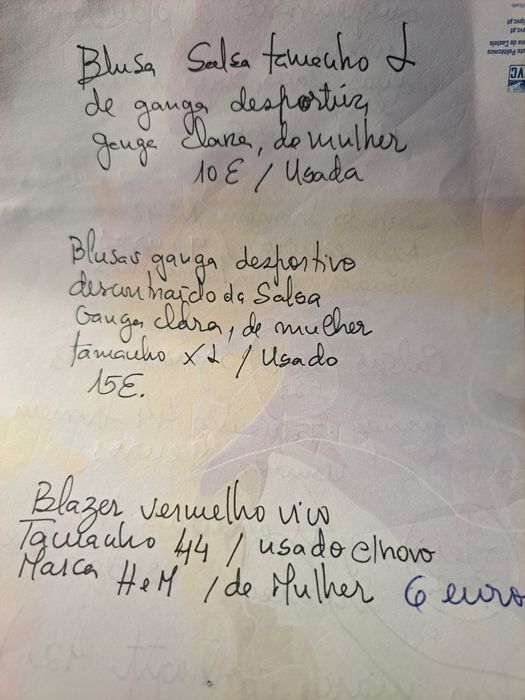 Blusa Salsa tamanho L
de ganga desportiva,
ganga clara, de mulher
10 € / Usada
Blusas ganga desportivo
descontraído da Salsa
Ganga clara, de mulher
tamanho XL / Usado
15€.
Blazer vermelho vivo
Tamanho 44 / usado c/novo
Marca HeM / de Mulher 6 euro